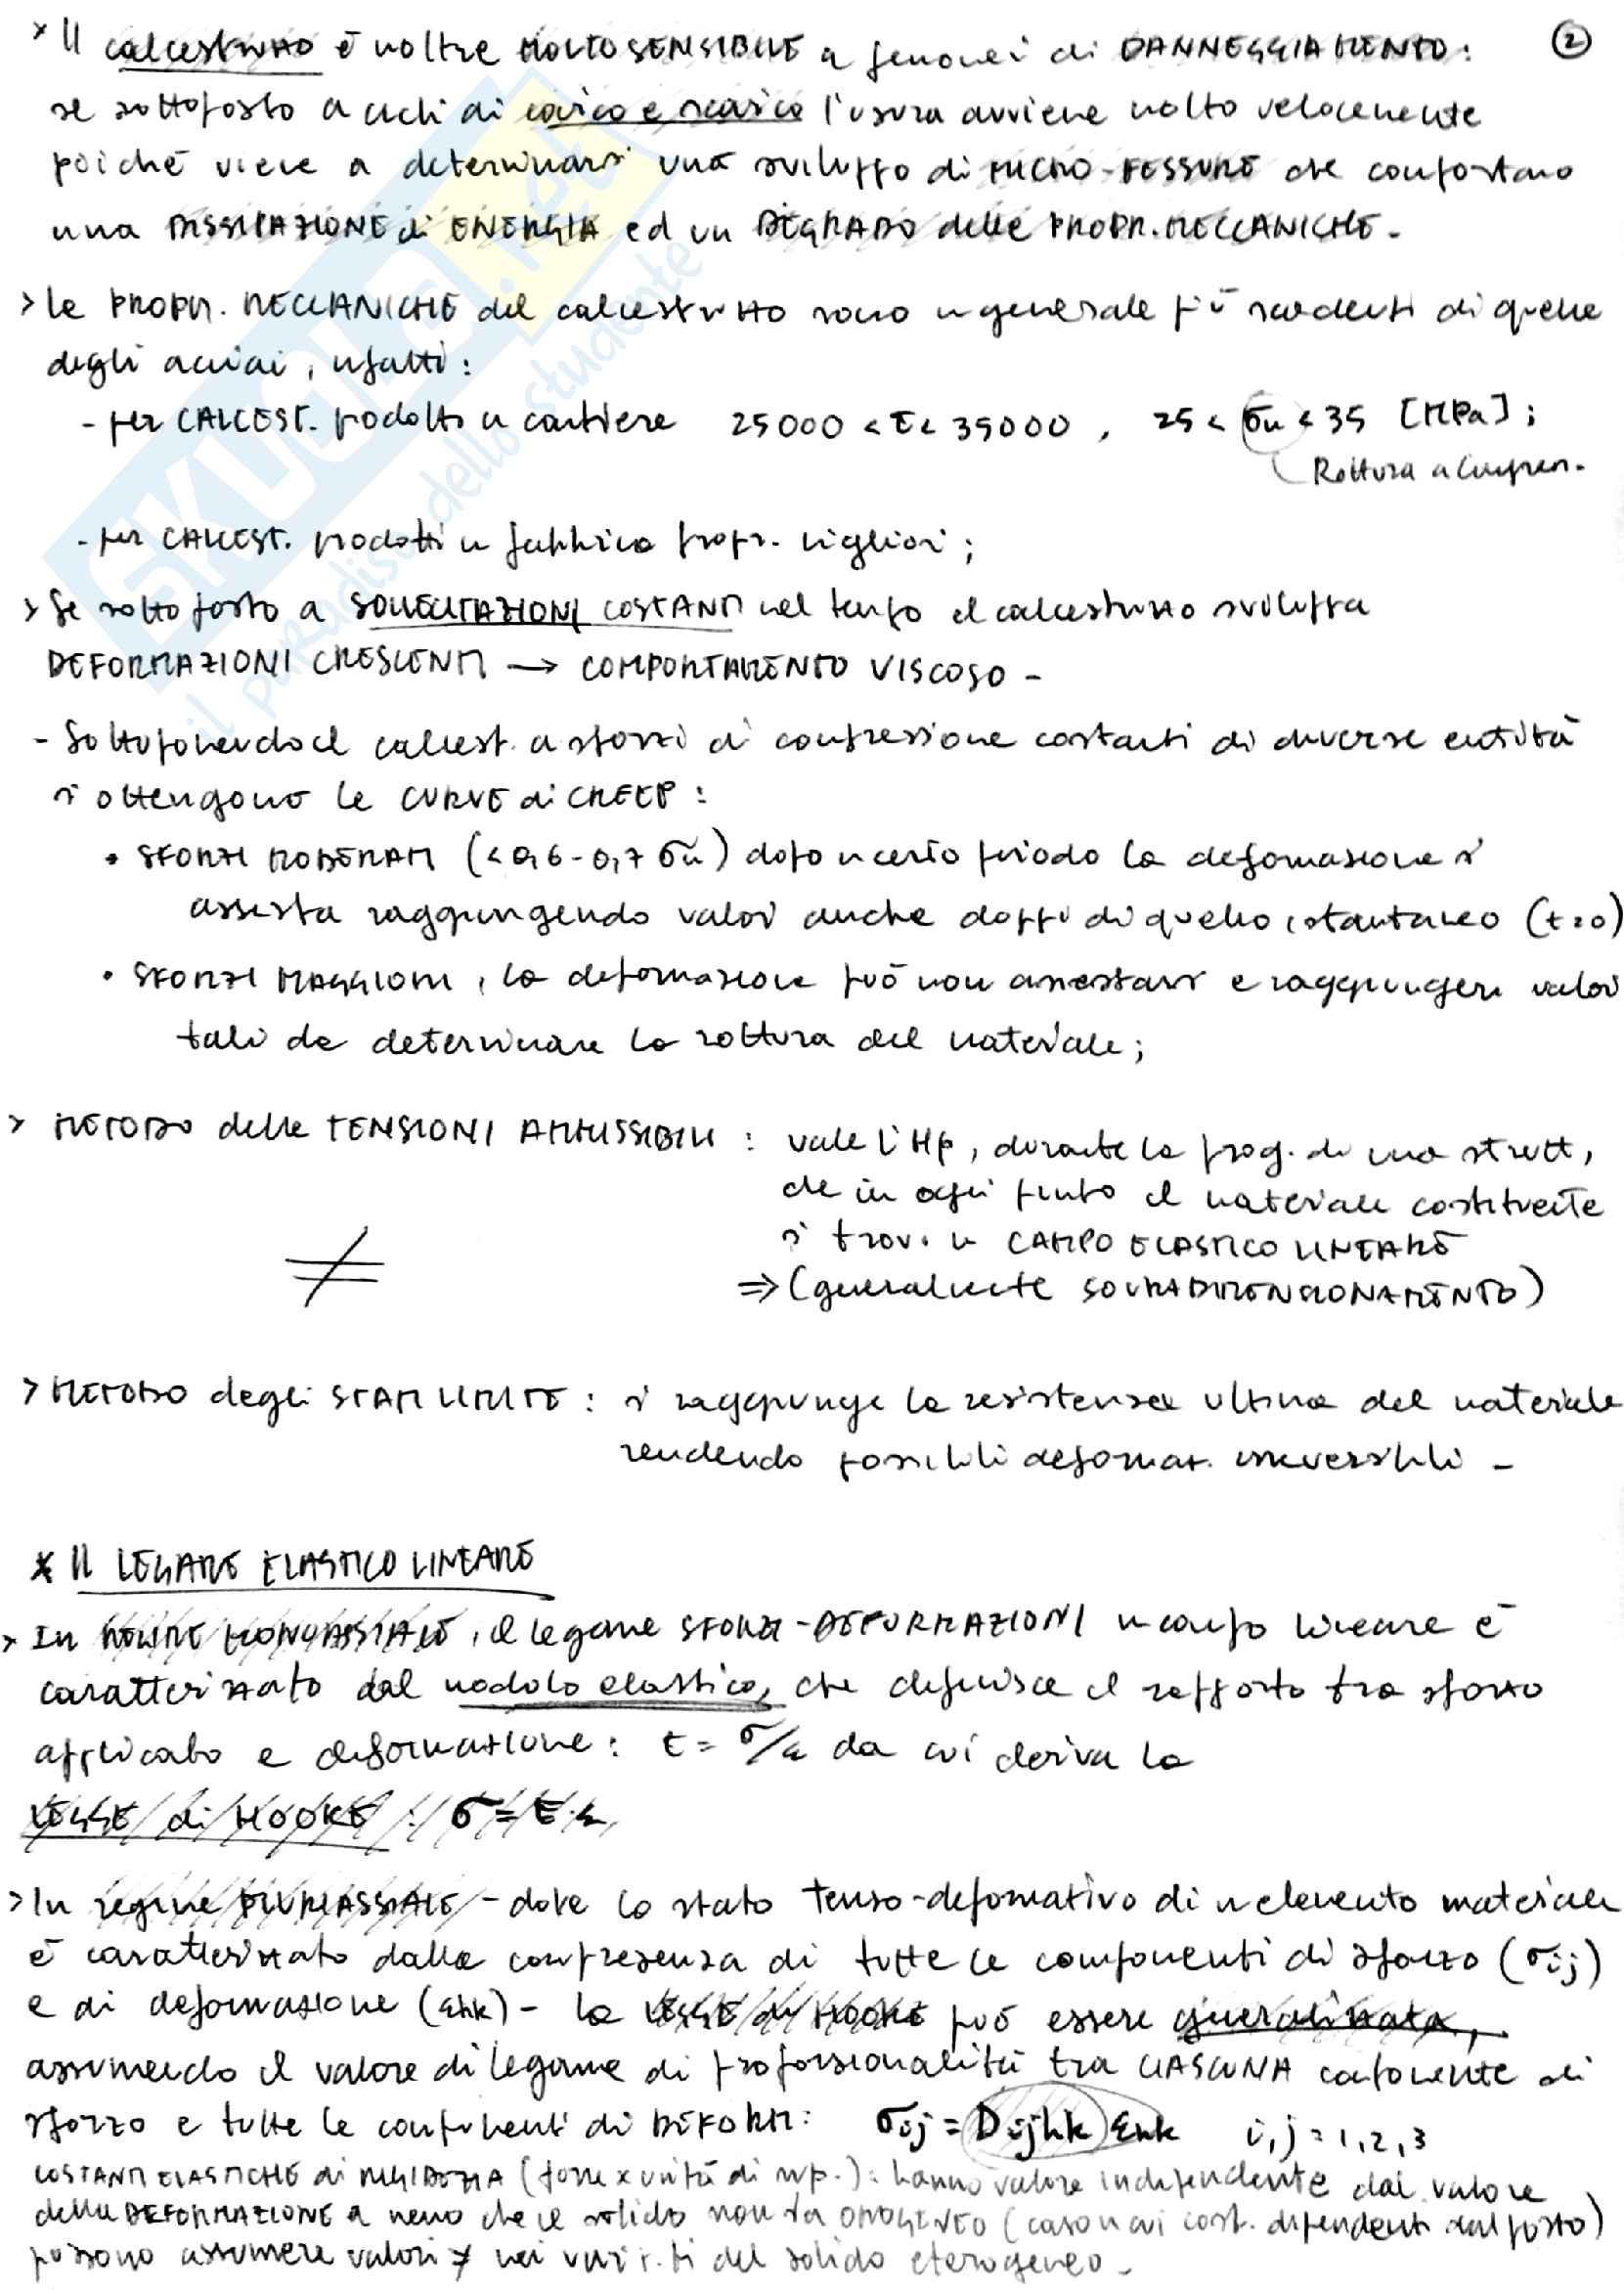 * Il calcestruzzo è inoltre MOLTO SENSIBILE a fenomeni di DANNEGGIAMENTO: ②
se sottoposto a cicli di carico e scarico l'usura avviene molto velocemente
poiché viene a determinarsi uno sviluppo di MICRO-FESSURE che comportano
una DISSIPAZIONE di ENERGIA ed un DEGRADO delle PROPR. MECCANICHE.
> Le PROPR. MECCANICHE del calcestruzzo sono in generale più scadenti di quelle
degli acciai, infatti:
- per CALCEST. prodotto in cantiere 25000 < E < 35000, 25 < σu < 35 [MPa];
Rottura a Compres.
- per CALCEST. prodotti in fabbrica propr. migliori;
> Se sottoposto a SOLLECITAZIONI COSTANTI nel tempo il calcestruzzo sviluppa
DEFORMAZIONI CRESCENTI → COMPORTAMENTO VISCOSO -
- Sottoponendo il calcest. a sforzi di compressione costanti di diverse entità
si ottengono le CURVE di CREEP:
• SFORZI MODERATI (< 0,6-0,7 σu) dopo un certo periodo la deformazione si
assesta raggiungendo valori anche doppi di quello istantaneo (t=0)
• SFORZI MAGGIORI, la deformazione può non assestarsi e raggiungere valori
tali da determinare la rottura del materiale;
> METODO delle TENSIONI AMMISSIBILI: vale l'Hp, durante la prog. di una strutt,
che in ogni punto il materiale costituente
si trovi in CAMPO ELASTICO LINEARE
≠
⇒ (generalmente SOVRADIMENSIONAMENTO)
> METODO degli STATI LIMITE: si raggiunge la resistenza ultima del materiale
rendendo possibili deformaz. irreversibili -
* Il LEGAME ELASTICO LINEARE
> In REGIME MONOASSIALE, il legame SFORZI-DEFORMAZIONI in campo lineare è
caratterizzato dal modulo elastico, che definisce il rapporto tra sforzo
applicato e deformazione: E = σ/ε da cui deriva la
LEGGE di HOOKE: σ = E·ε
> In regime PLURIASSIALE - dove lo stato tenso-deformativo di un elemento materiale
è caratterizzato dalla compresenza di tutte le componenti di sforzo (σij)
e di deformazione (εhk) - la LEGGE di HOOKE può essere generalizzata,
assumendo il valore di legame di proporzionalità tra CIASCUNA componente di
sforzo e tutte le componenti di DEFORM: σij = Dijhk εhk i,j = 1,2,3
COSTANTI ELASTICHE di RIGIDEZZA (forze x unità di sup.): hanno valore indipendente dal valore
della DEFORMAZIONE a meno che il solido non sia OMOGENEO (caso in cui cost. dipendenti dal posto)
possono assumere valori ≠ nei vari p.ti del solido eterogeneo -
SKUOLA.net
il paradiso dello studente